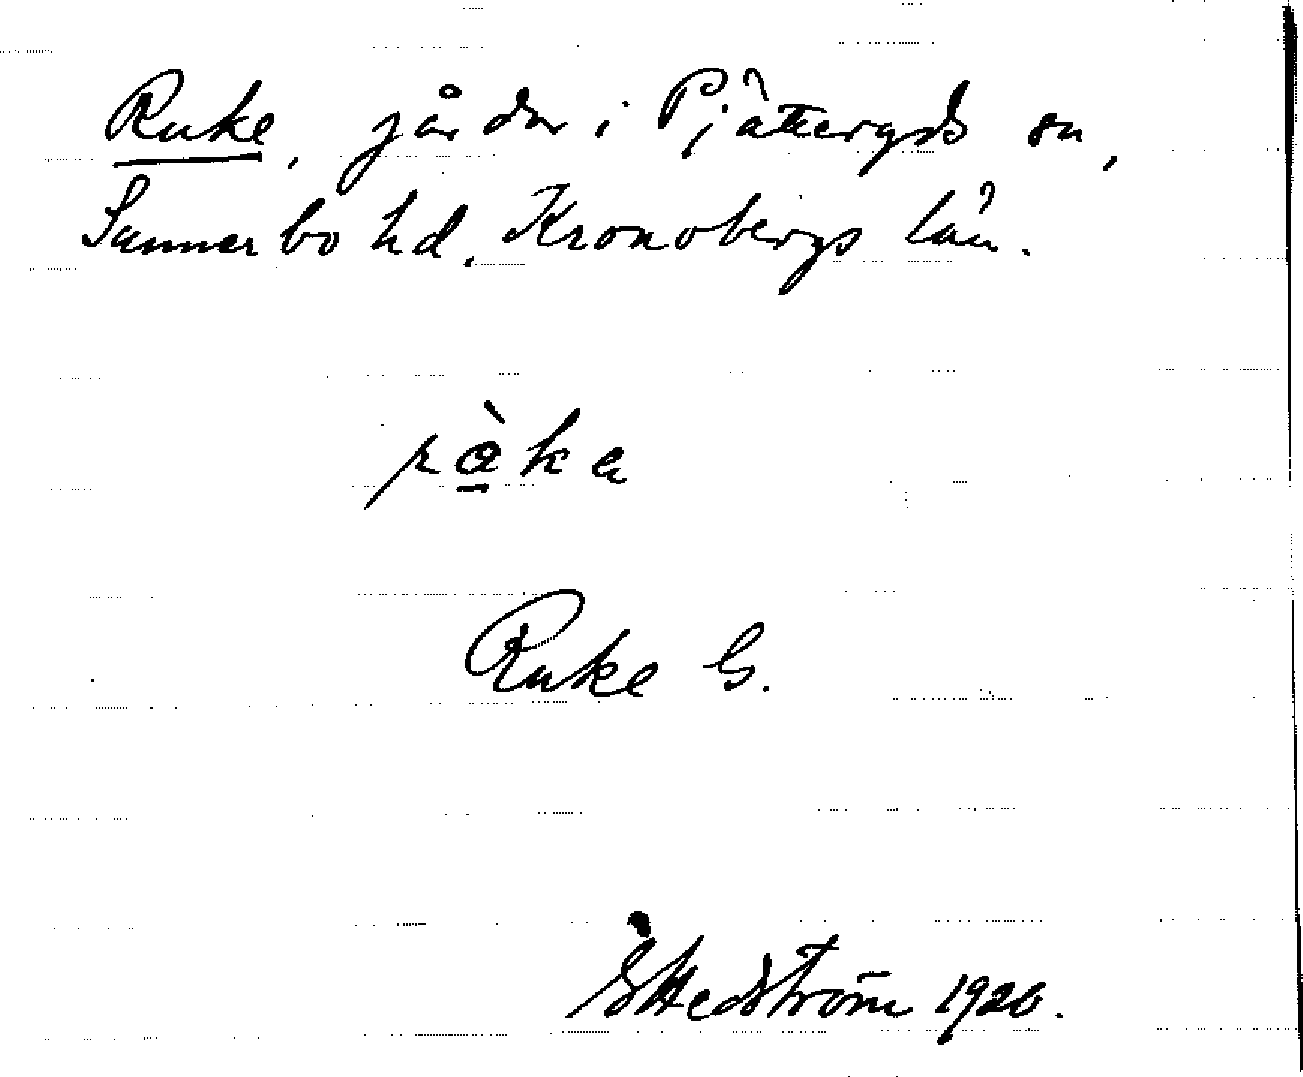 Ruke, gårdar i Pjätteryds sn,
Sunnerbo hd. Kronobergs län.
ràka
Ruke G.
G Hedström 1920.